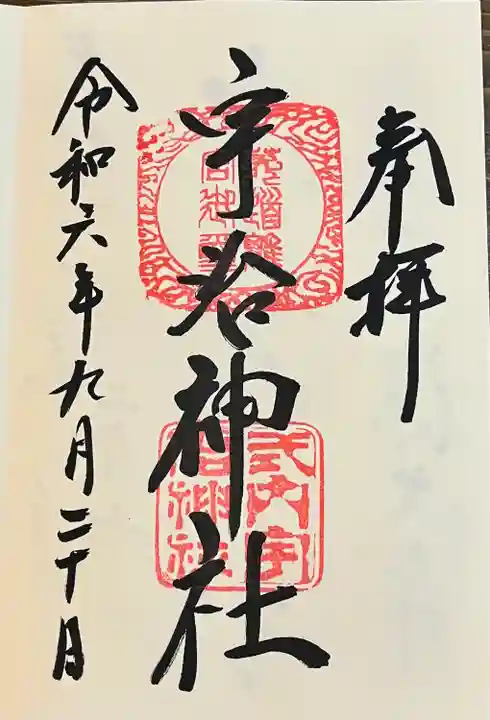 奉拝
宇治神社
令和六年九月二十日
式内宇
治神社